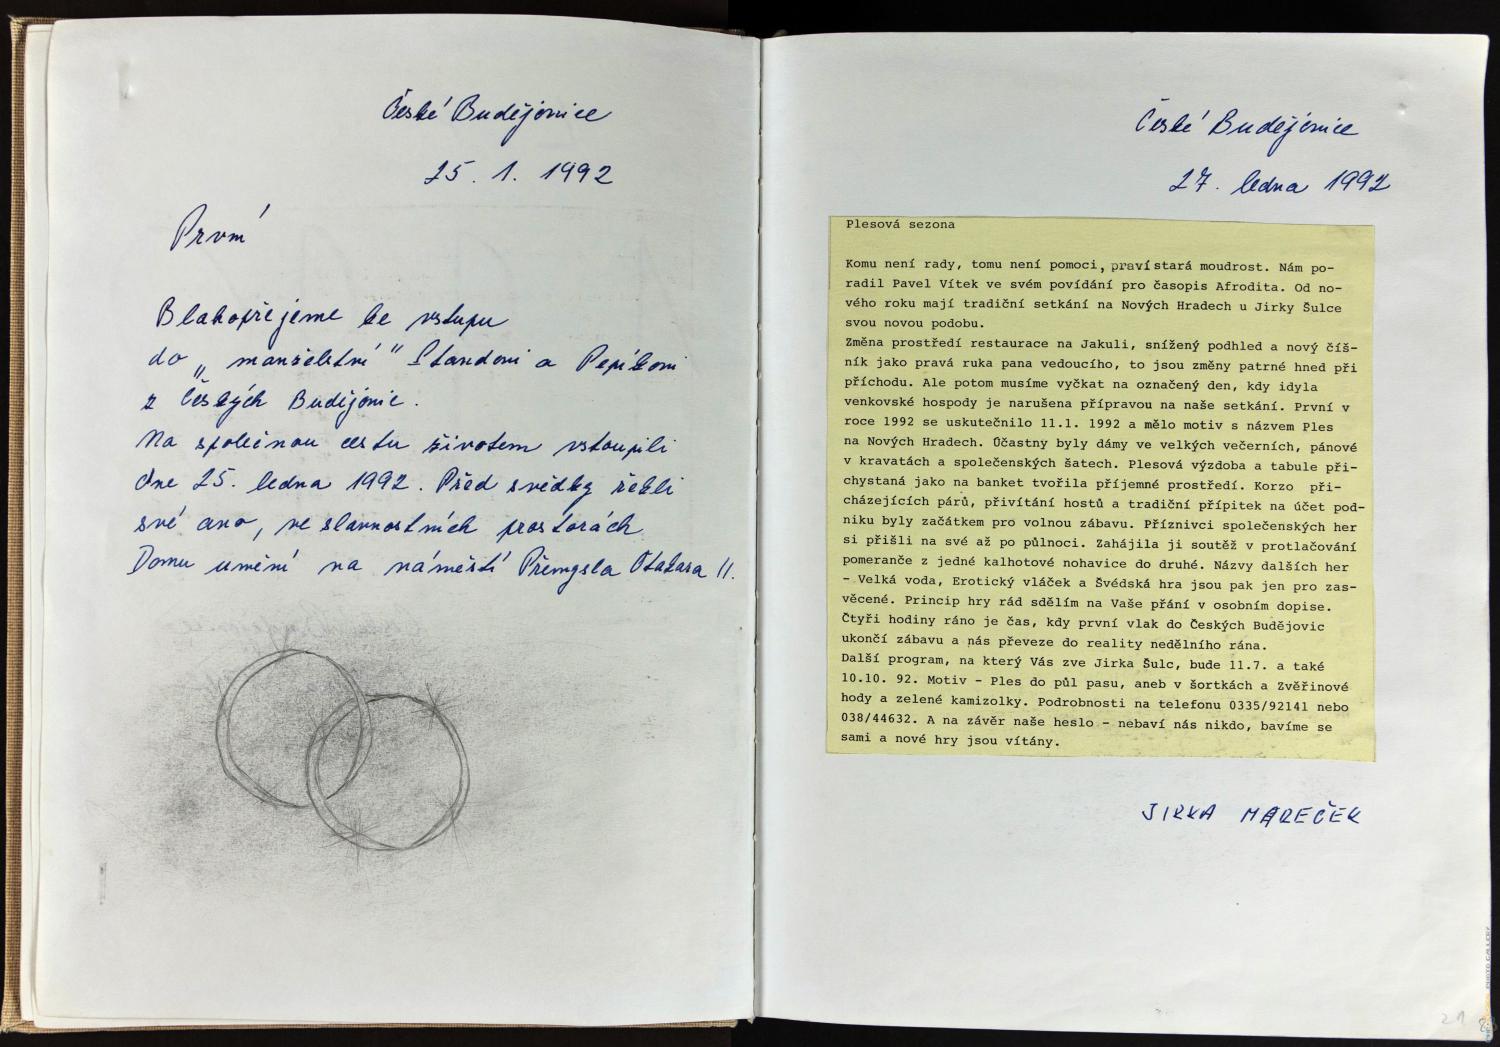 České Budějovice
25. 1. 1992
První
Blahopřejeme ke vstupu
do „manželství" Standovi a Pepíkovi
z Českých Budějovic.
Na společnou cestu životem vstoupili
dne 25. ledna 1992. Před svědky řekli
své ano, ve slavnostních prostorách
Domu umění na náměstí Přemysla Otakara II.
České Budějovice
27. ledna 1992
Plesová sezona
Komu není rady, tomu není pomoci, praví stará moudrost. Nám po-
radil Pavel Vítek ve svém povídání pro časopis Afrodita. Od no-
vého roku mají tradiční setkání na Nových Hradech u Jirky Šulce
svou novou podobu.
Změna prostředí restaurace na Jakuli, snížený podhled a nový číš-
ník jako pravá ruka pana vedoucího, to jsou změny patrné hned při
příchodu. Ale potom musíme vyčkat na označený den, kdy idyla
venkovské hospody je narušena přípravou na naše setkání. První v
roce 1992 se uskutečnilo 11.1. 1992 a mělo motiv s názvem Ples
na Nových Hradech. Účastny byly dámy ve velkých večerních, pánové
v kravatách a společenských šatech. Plesová výzdoba a tabule při-
chystaná jako na banket tvořila příjemné prostředí. Korzo při-
cházejících párů, přivítání hostů a tradiční přípitek na účet pod-
niku byly začátkem pro volnou zábavu. Příznivci společenských her
si přišli na své až po půlnoci. Zahájila ji soutěž v protlačování
pomeranče z jedné kalhotové nohavice do druhé. Názvy dalších her
- Velká voda, Erotický vláček a Švédská hra jsou pak jen pro zas-
věcené. Princip hry rád sdělím na Vaše přání v osobním dopise.
Čtyři hodiny ráno je čas, kdy první vlak do Českých Budějovic
ukončí zábavu a nás převeze do reality nedělního rána.
Další program, na který Vás zve Jirka Šulc, bude 11.7. a také
10.10. 92. Motiv - Ples do půl pasu, aneb v šortkách a Zvěřinové
hody a zelené kamizolky. Podrobnosti na telefonu 0335/92141 nebo
038/44632. A na závěr naše heslo - nebaví nás nikdo, bavíme se
sami a nové hry jsou vítány.
JIRKA MAREČEK
21